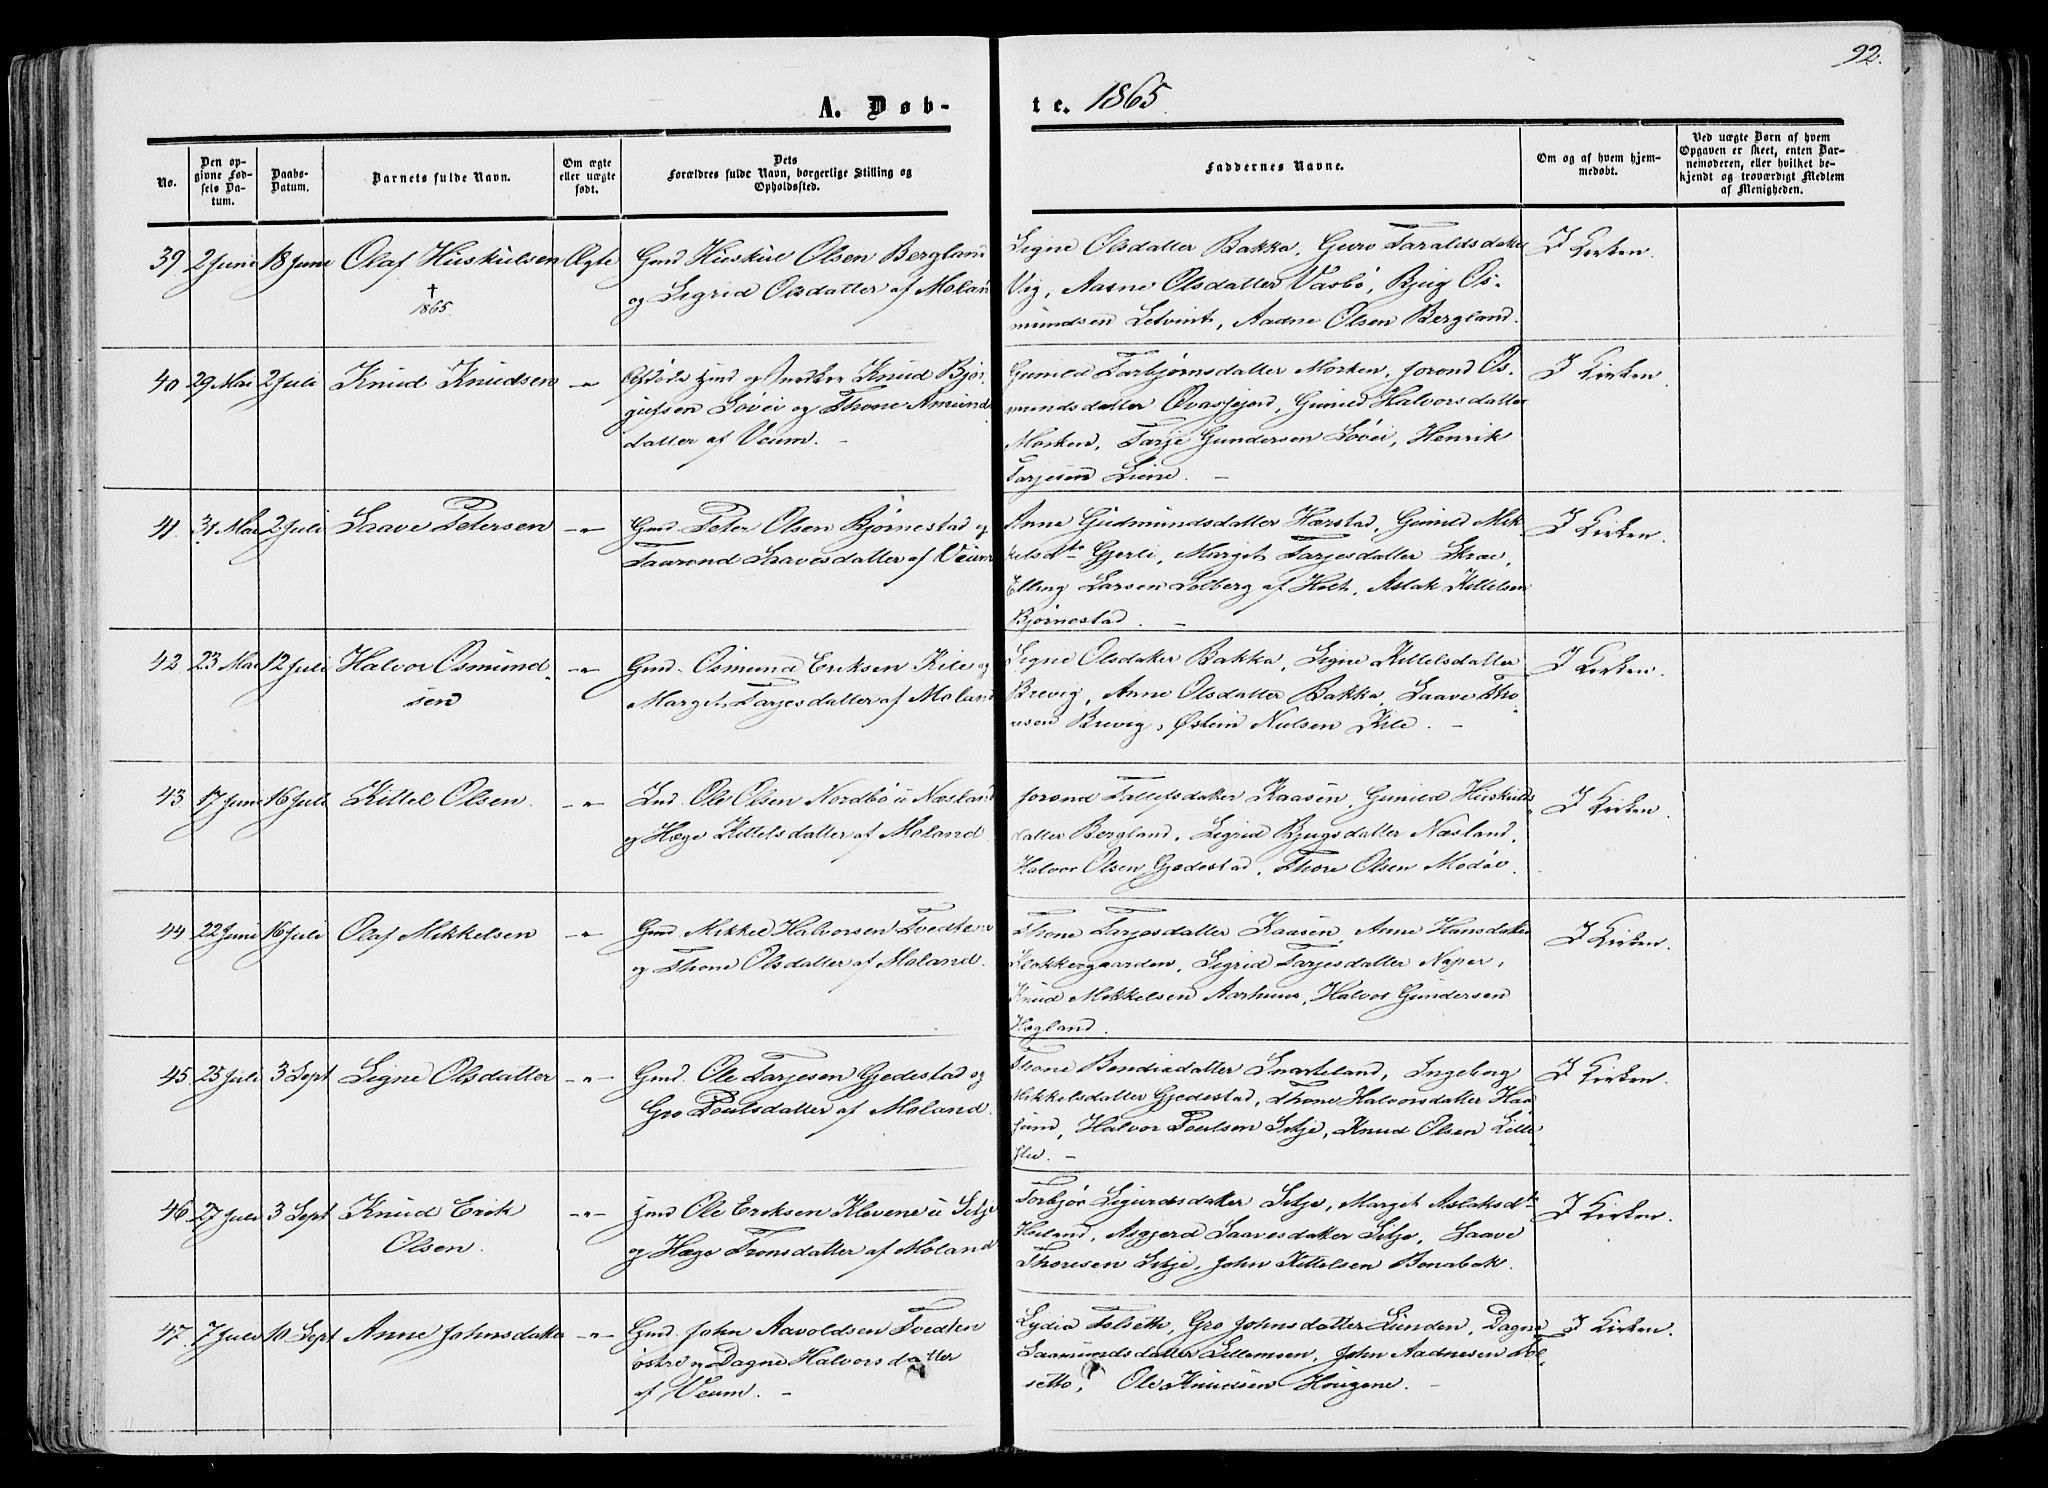 92.
A. Døb-
te. 1865.
No.
Den op-
givne Fød-
sels Da-
tum.
Daabs-
Datum.
Barnets fulde Navn.
Om ægte
eller uægte
født.
Dets
Forældres fulde Navn, borgerlige Stilling og
Opholdssted.
Faddernes Navne.
Om og af hvem hjem-
medøbt.
Ved uægte Børn af hvem
Opgaven er skeet, enten Bar-
nemoderen, eller hvilket be-
kjendt og troværdigt Medlem
af Menigheden.
39 2 Juni 18 Juni Olaf Huskulsen Ægte
† 1865.
Gmd Huskul Olsen Bergland
og Sigrid Olsdatter af Moland
Signe Olsdatter Bakka, Guro Taraldsdatter
Vig, Aasne Olsdatter Vasbø, Bjug Os-
mundsen Letvint, Aadne Olsen Bergland.
I Kirken.
40 29 Mai 2 Juli Knud Knudsen -"-
Afdøde Hmd og Snedker Knud Bjør-
gufsen Løvei og Thone Amunds-
datter af Veum. -
Gunild Torbjørnsdatter Morken, Jorond Os-
mundsdatter Ovasfjord, Gunild Halvorsdatter
Morken, Tarje Gundersen Løvei, Henrik
Tarjesen Liene. -
I Kirken.
41. 31 Mai 2 Juli Saave Petersen -"-
Gmd. Peter Olsen Bjørnestad og
Taarond Saavesdatter af Veum
Anne Gudmundsdatter Harstad, Gunild Mik-
kelsdtr Gjerli, Margit Tarjesdatter Skrae,
Elling Larsen Solberg af Holt, Aslak Kittelsen
Bjørnestad. -
I Kirken.
42. 23 Mai 12 Juli Halvor Osmund-
sen -"-
Gmd. Osmund Eriksen Kile og
Margit Tarjesdatter af Moland
Signe Olsdatter Bakka, Signe Kittelsdatter
Brevig, Anne Olsdatter Bakka, Saave Tho-
resen Brevig, Østein Nielsen Kile. -
I Kirken.
43 17 Juni 16 Juli Kittel Olsen. -"-
Ind. Ole Olsen Nordbø u Næsland
og Hæge Kittelsdatter af Moland.
Jorond Tallefsdatter Kaasen, Gunild Huskulds-
datter Bergland, Sigrid Bjugsdatter Næsland,
Halvor Olsen Gjedestad, Thore Olsen Modøe.
I Kirken.
44 22 Juni 16 Juli Olaf Mikkelsen -"-
Gmd. Mikkel Halvorsen Tvedtene
og Thone Olsdatter af Moland.
Thone Tarjesdatter Kaasen, Anne Hansdatter
Klokkergaarden, Sigrid Tarjesdatter Naper,
Knud Mikkelsen Aarhuus, Halvor Gundersen
Hægland.
I Kirken.
45 25 Juli 3 Sept Signe Olsdatter -"-
Gmd. Ole Tarjesen Gjedestad og
Gro Poulsdatter af Moland.
Thone Bendixdatter Snarteland, Ingeborg
Mikkelsdatter Gjedestad, Thone Halvorsdatter Haa-
sund, Halvor Poulsen Sitje, Knud Olsen Lille-
flu. -
I Kirken.
46 27 Juli 3 Sept Knud Erik
Olsen. -"-
Hmd Ole Eriksen Klevene u Sitje
og Hæge Tronsdatter af Moland
Torbjør Sigurdsdatter Sitje, Margit Aslaksdtr
Heiland, Asgjerd Saavesdatter Sitje, Saave
Thoresen Sitje, John Kittelsen Bonabek.
I Kirken.
47. 7 Juli 10 Sept Anne Johnsdatter -"-
Gmd. John Aavoldsen Tvedten
østre og Dagne Halvorsdatter
af Veum. -
Lydia Folseth, Gro Johnsdatter Lunden, Dagne
Saamundsdatter Lillemoen, John Aadnesen Fol-
setto, Ole Knudsen Hougene. -
I Kirken.